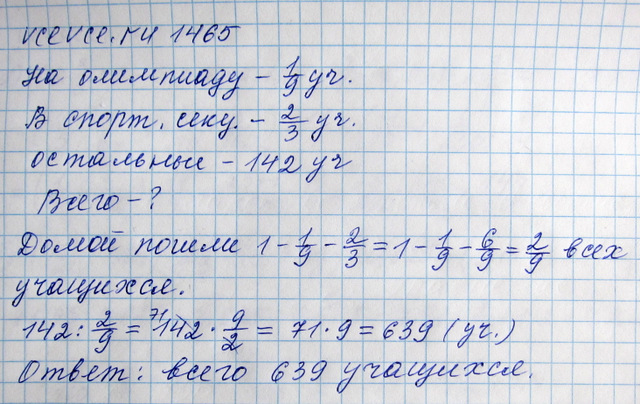 vcevce.ru 1465
На олимпиаду - 1/9 уч.
В спорт. секц. - 2/3 уч.
остальные - 142 уч
Всего - ?
Домой пошли 1 - 1/9 - 2/3 = 1 - 1/9 - 6/9 = 2/9 всех
учащихся.
142 : 2/9 = 71 142 · 9/2 = 71 · 9 = 639 (уч.)
Ответ: всего 639 учащихся.